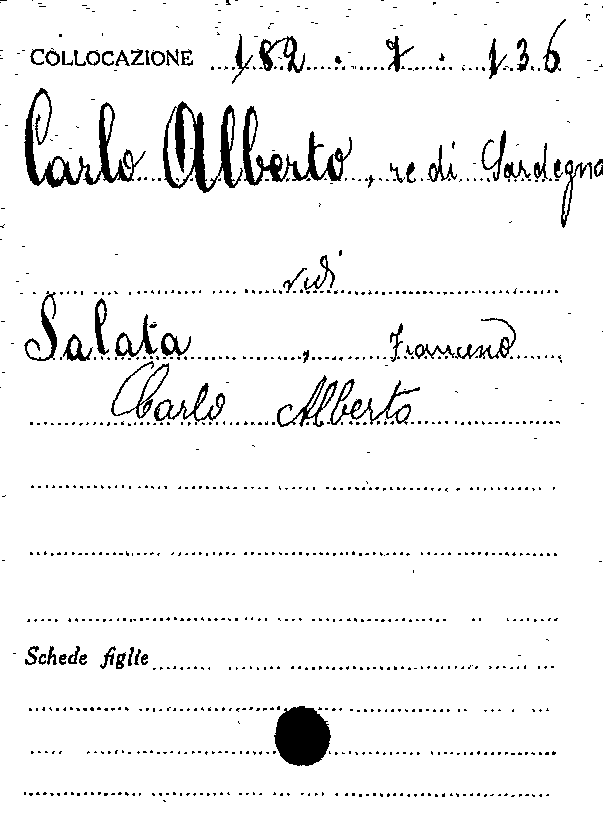 COLLOCAZIONE 182 . 7 . 136
Carlo Alberto, re di Sardegna
vedi
Salata, Francesco
Carlo Alberto
Schede figlie